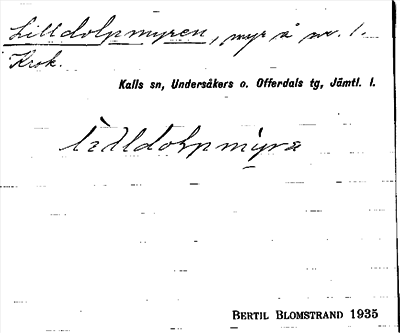 Lilldolpmyren, myr å nr. 1.
Krok.
Kalls sn, Undersåkers o. Offerdals tg, Jämtl. l.
BERTIL BLOMSTRAND 1935